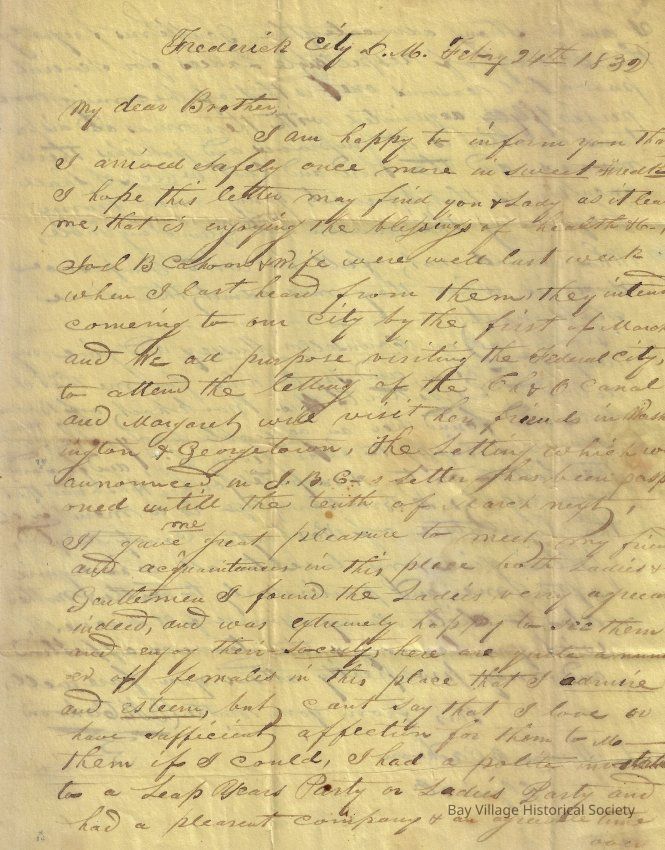 Frederick City D.M. Feby 24th 1832
My dear Brother,
I am happy to inform you that
I arrived safely once more in sweet Fredk
I hope this letter may find you & Lady as it lea
me, that is enjoying the blessings of health &c.
Joel B Cahoon & Wife were well last week
when I last heard from them, they intend
comeing to our City by the first of March
and We all purpose visiting the Federal City,
to attend the letting of the Ch & O Canal
and Margaret will visit her friends in Wash
ington & Georgetown, The Letting which w
announced in J. B. C-s Letter has been posp
oned untill the tenth of March next,
It gave me great pleasure to meet my frien
and acquaintances in this place both Ladies &
Gentlemen I found the Ladies very agreea
indeed, and was extremely happy to see them
and enjoy their society, here are quite a num
er of females in this place that I admire
and esteem, but cant say that I love or
have sufficient affection for them to M
them if I could, I had a polite invitati
to a Leap Years Party or Ladies Party and
had a pleasant company & an agreeable time
over
Bay Village Historical Society